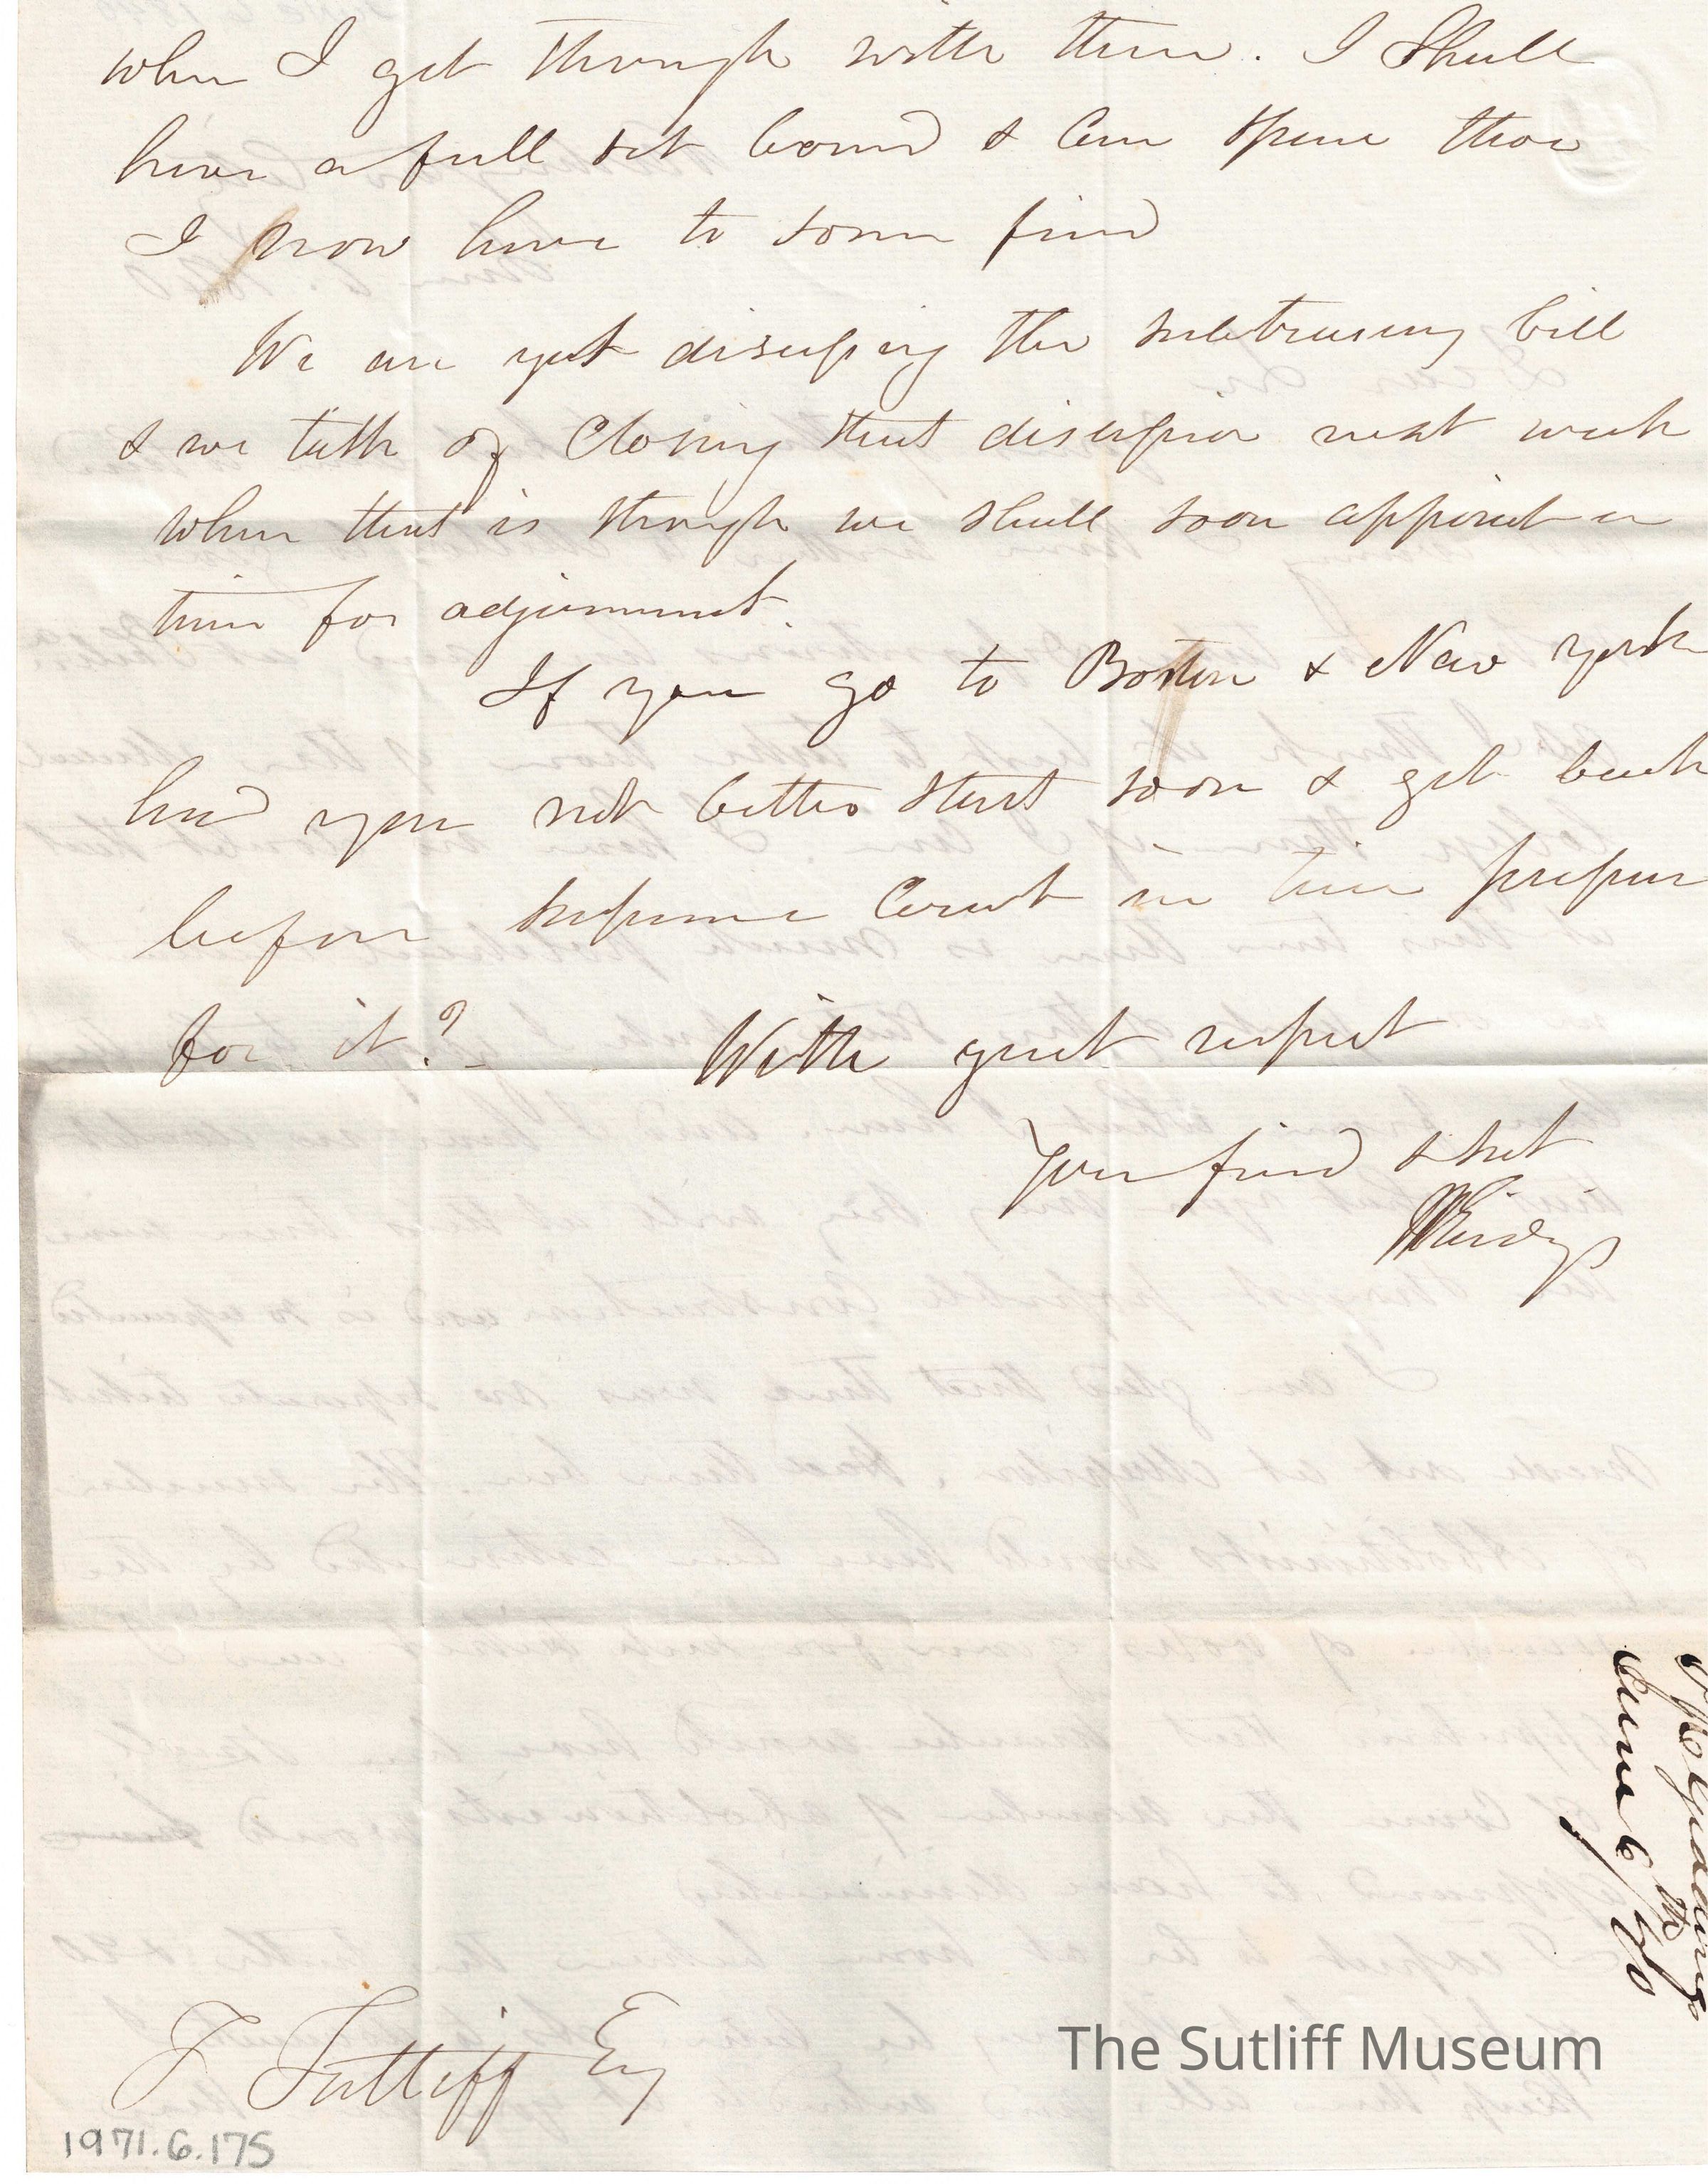 when I get through with them. I Shall
have a full set bound & Can spare those
I now have to some friend
We are yet discussing the subtreasury bill
& we talk of Closing that discussion next week
when that is through we shall soon appoint a
time for adjournment.
If you go to Boston & New York
had you not better start soon & get back
before supreme Court in time prepare
for it?
With great respect
Your friend &
JRGiddings
J R Giddings
June 6th /40
F Sutliff Esq
1971.6.175
The Sutliff Museum